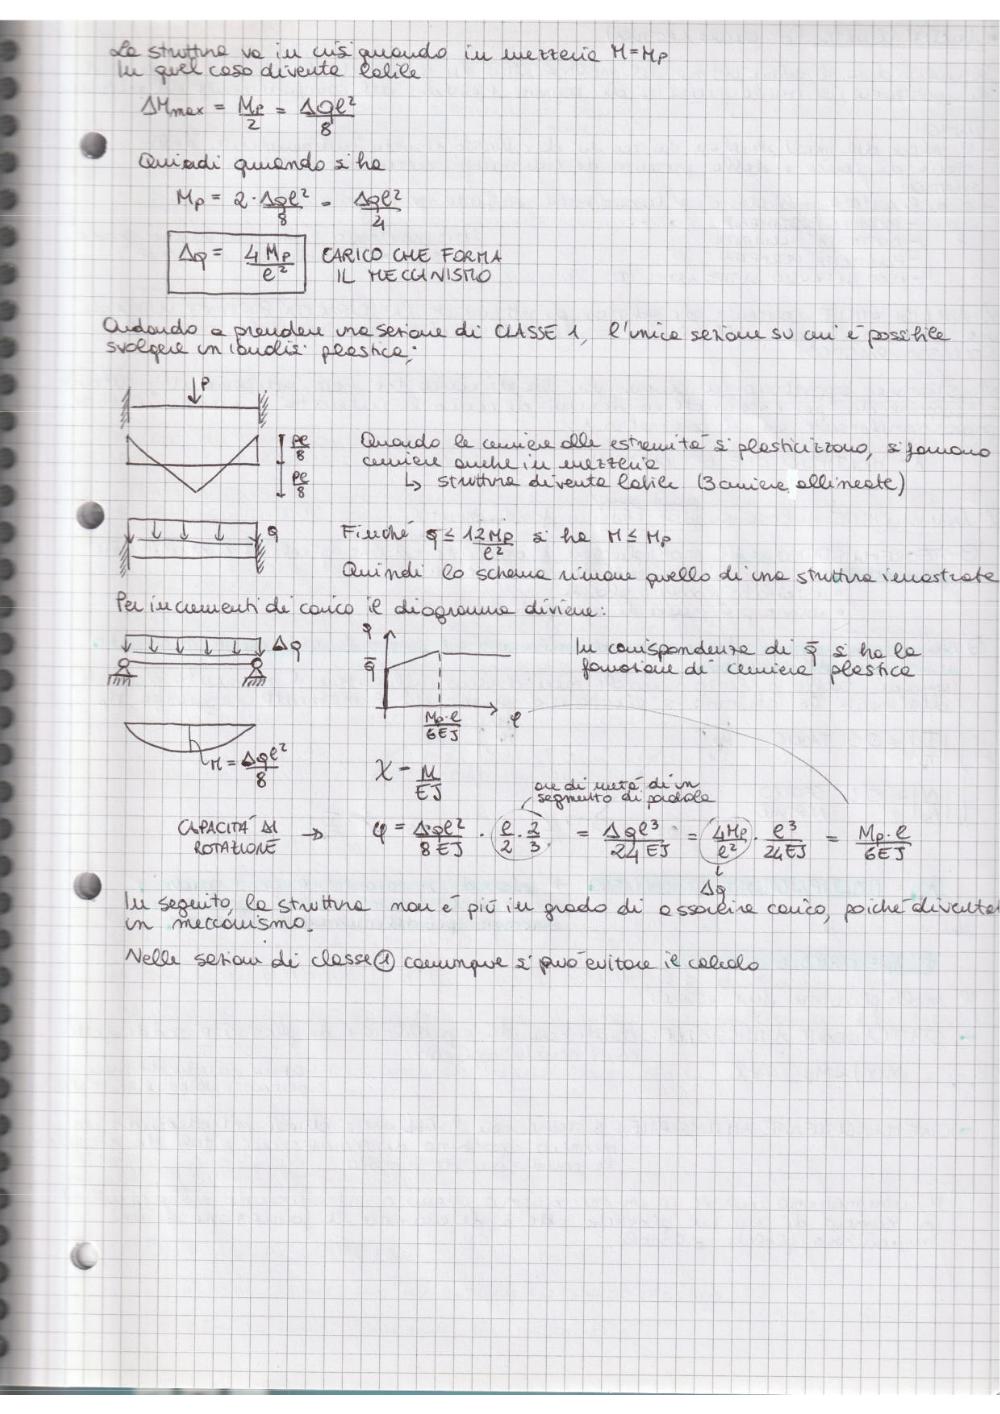 La struttura va in crisi quando in mezzeria M=Mp
In quel caso diventa labile
ΔMmax = Mp/2 = Δql²/8
Quindi quando si ha
Mp = 2·Δql²/8 = Δql²/4
Δq = 4Mp/l² CARICO CHE FORMA
IL MECCANISMO
Andando a prendere una sezione di CLASSE 1, l'unica sezione su cui è possibile
svolgere un'analisi plastica;
P
Pl/8
Pl/8
Quando le cerniere alle estremità si plasticizzano, si formano
cerniere anche in mezzeria
↳ struttura diventa labile (3 cerniere allineate)
q
Finché q ≤ 12Mp/l² si ha M ≤ Mp
Quindi lo schema rimane quello di una struttura incastrata
Per incrementi di carico il diagramma diviene:
Δq
q
q̄
Mp·l/6EJ
φ
In corrispondenza di q̄ si ha la
formazione di cerniera plastica
M = Δql²/8
χ = M/EJ
area di metà di un
segmento di parabola
CAPACITÀ DI
ROTAZIONE → φ = Δql²/8EJ · l/2 · 2/3 = Δql³/24EJ = 4Mp/l² · l³/24EJ = Mp·l/6EJ
Δq
In seguito, la struttura non è più in grado di assorbire carico, poiché diventa
un meccanismo.
Nelle sezioni di classe ① comunque si può evitare il calcolo